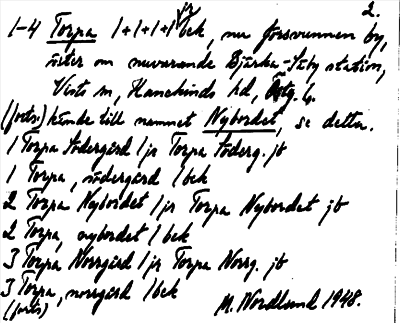 2.
1-4 Torpa 1+1+1+1 bek, nu försvunnen by,
öster om nuvarande Bjärka-Säby station,
Vists sn, Hanekinds hd, Östg. l.
(forts.) hände till namnet Nybordet, se detta.
1 Torpa Södergård / jr Torpa Söderg. jb
1 Torpa, södergård / bek
2 Torpa Nybordet / jr Torpa Nybordet jb
2 Torpa, nybordet / bek
3 Torpa Norrgård / jr Torpa Norrg. jb
3 Torpa, norrgård / bek
(forts) M. Nordlund 1948.